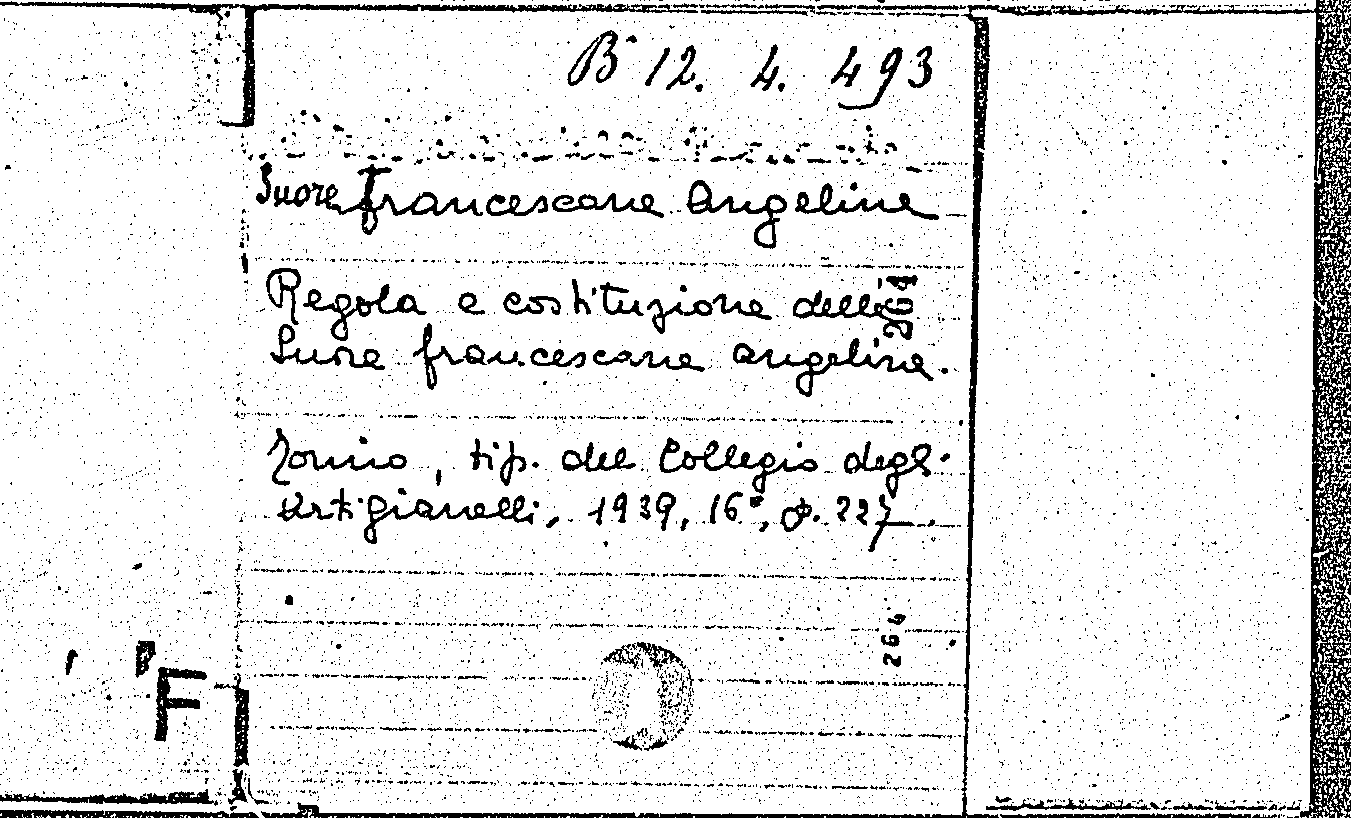 B 12. 4. 493
Suore Francescane Angeline
Regola e costituzione delle
264
Suore francescane angeline.
Torino, tip. del Collegio degl.
Artigianelli, 1939, 16°, p. 227.
264
F